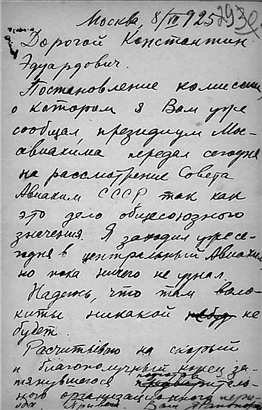 Москва, 8/IV 925
Дорогой Константин
Эдуардович.
Постановление комиссии,
о котором я Вам уже
сообщал, президиум Мос-
авиахима передал сегодня
на рассмотрение Совета
Авиахим СССР, так как
это дело общесоюзного
значения. Я заходил уже се-
годня в центральный Авиахим
но пока ничего не узнал.
Надеюсь, что там воло-
киты никакой не
будет.
Рассчитываю на скорый
и благополучный конец за-
тянувшегося
ного организационного пери-
ода